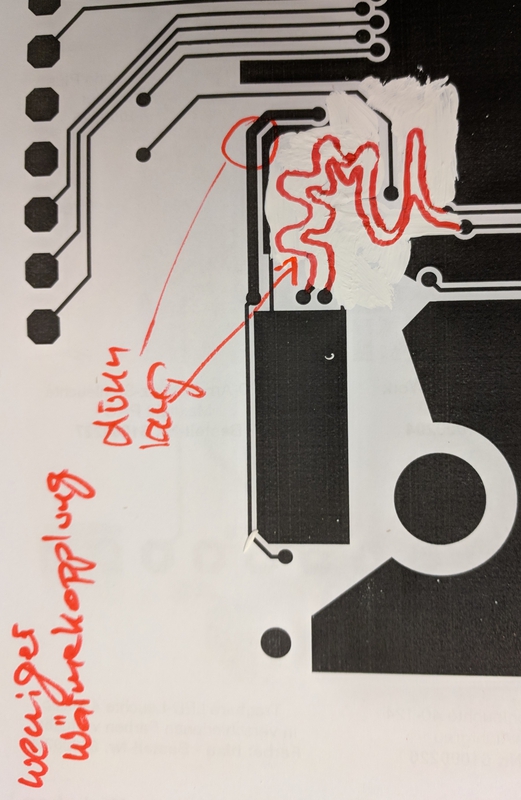 dünn
lang
weniger
Wärmekopplung